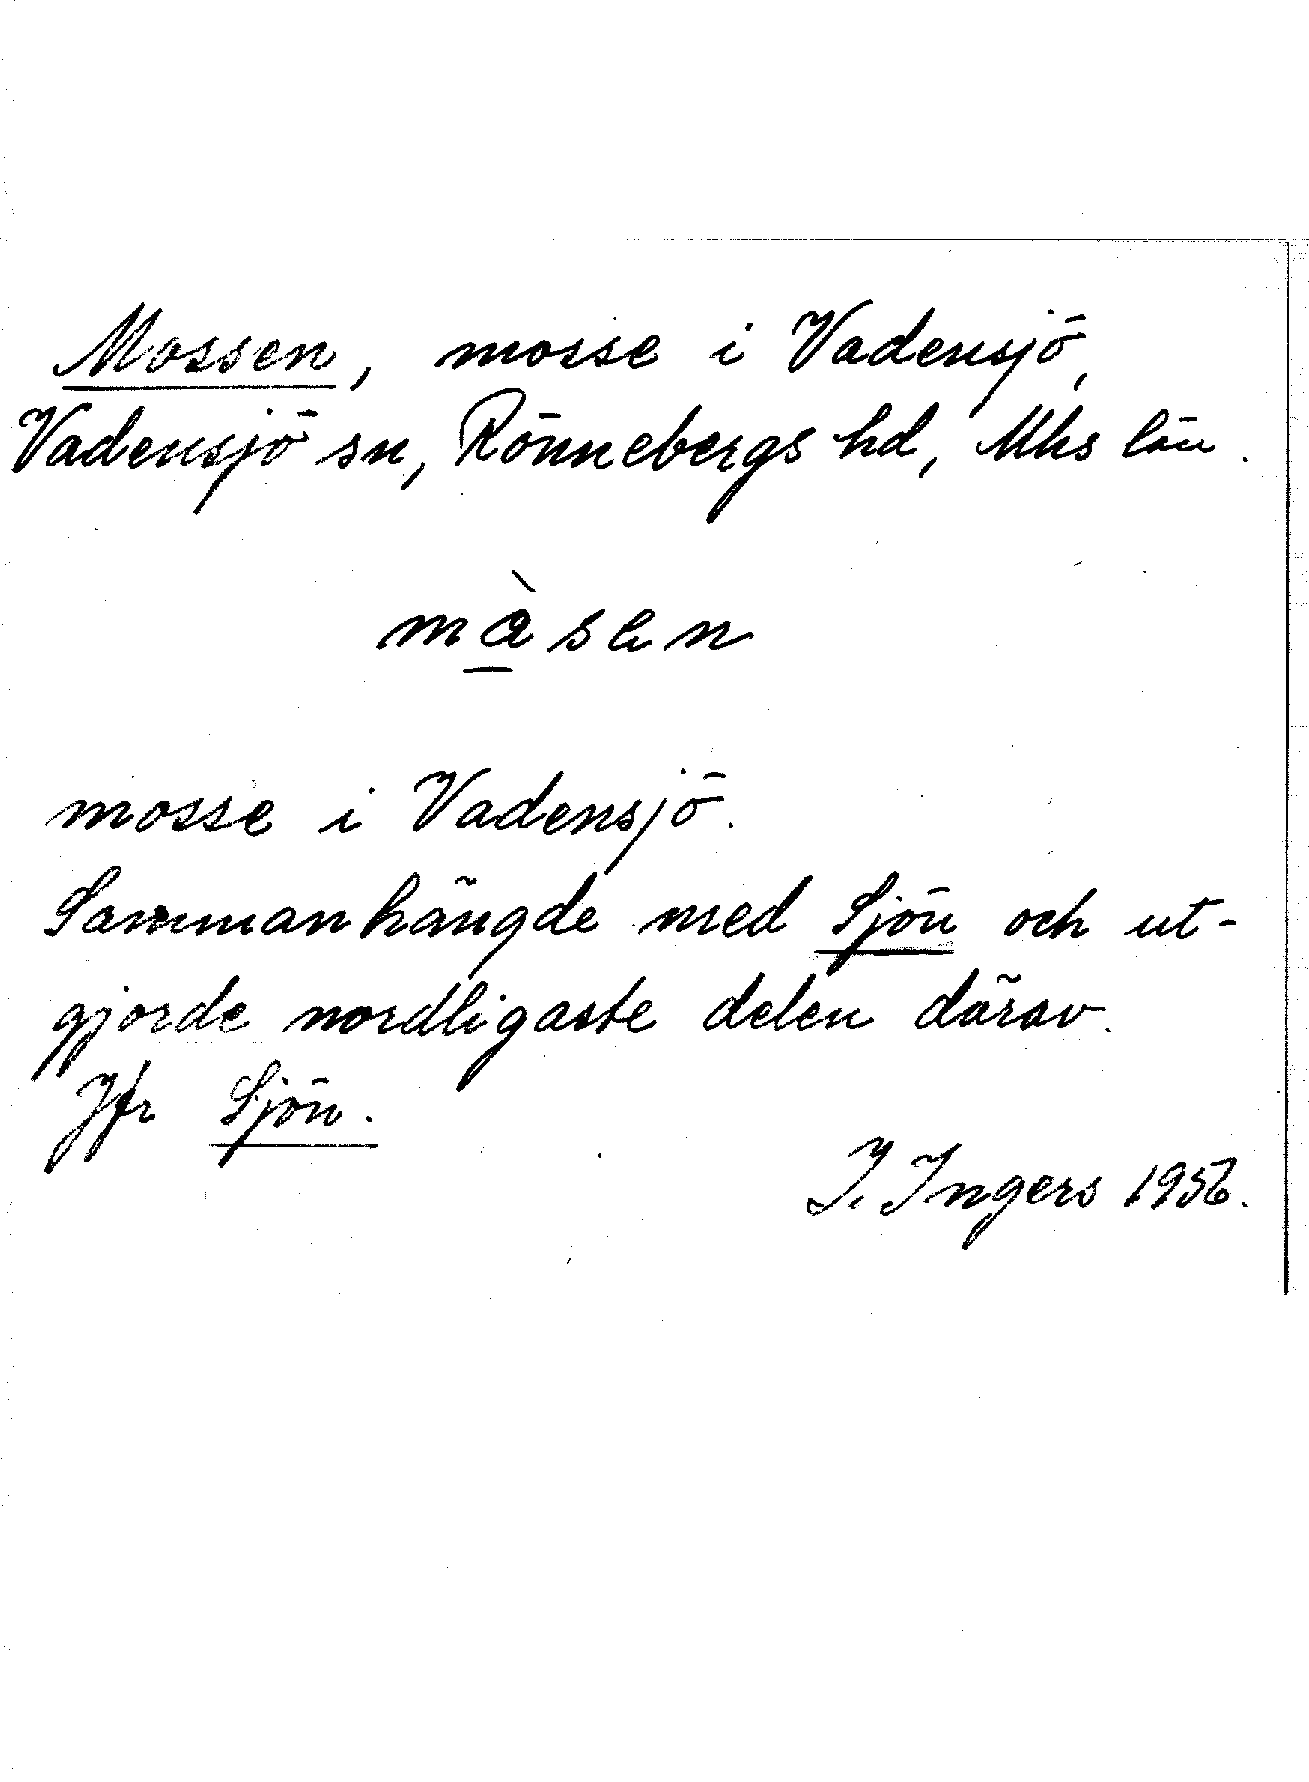 Mossen, mosse i Vadensjö,
Vadensjö sn, Rönnebergs hd, Mhs län.
mòsen
mosse i Vadensjö.
Sammanhängde med Sjön och ut-
gjorde nordligaste delen därav.
Jfr Sjön.
I. Ingers 1956.